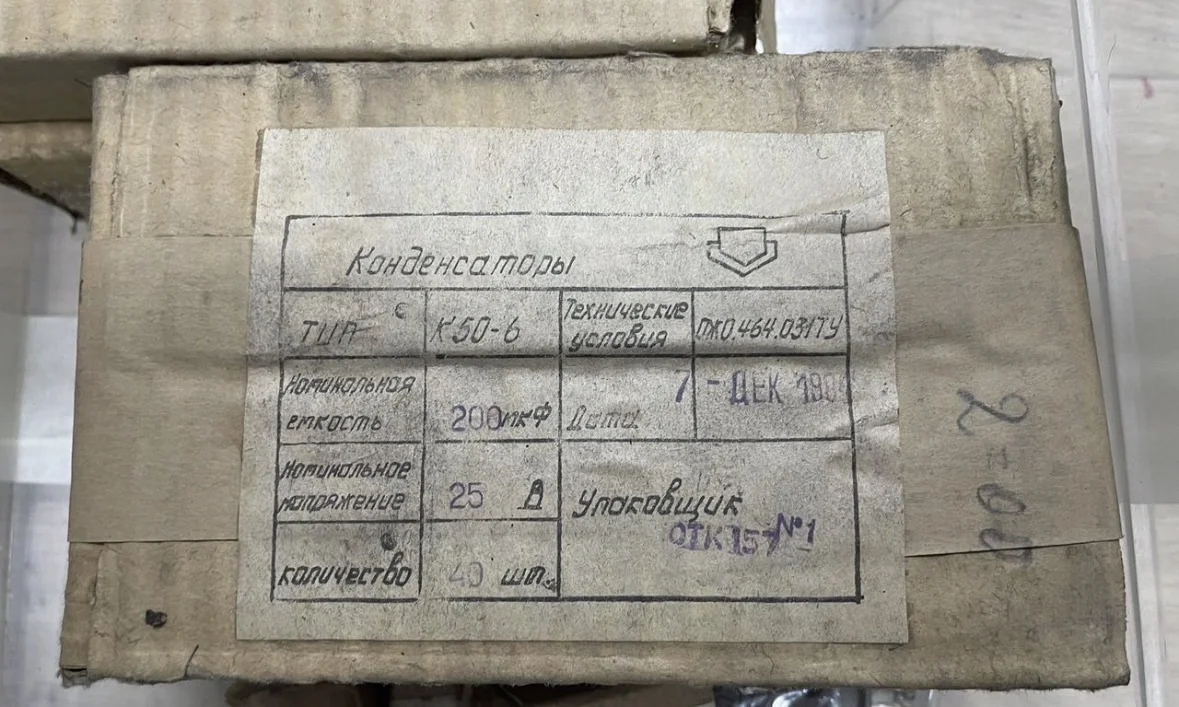 Конденсаторы
Тип К50-6 Технические условия ОЖО.464.031ТУ
Номинальная емкость 200 мкФ Дата 7 - ДЕК
Номинальное напряжение 25 В Упаковщик
ОТК 157 №1
количество 40 шт.
2=00